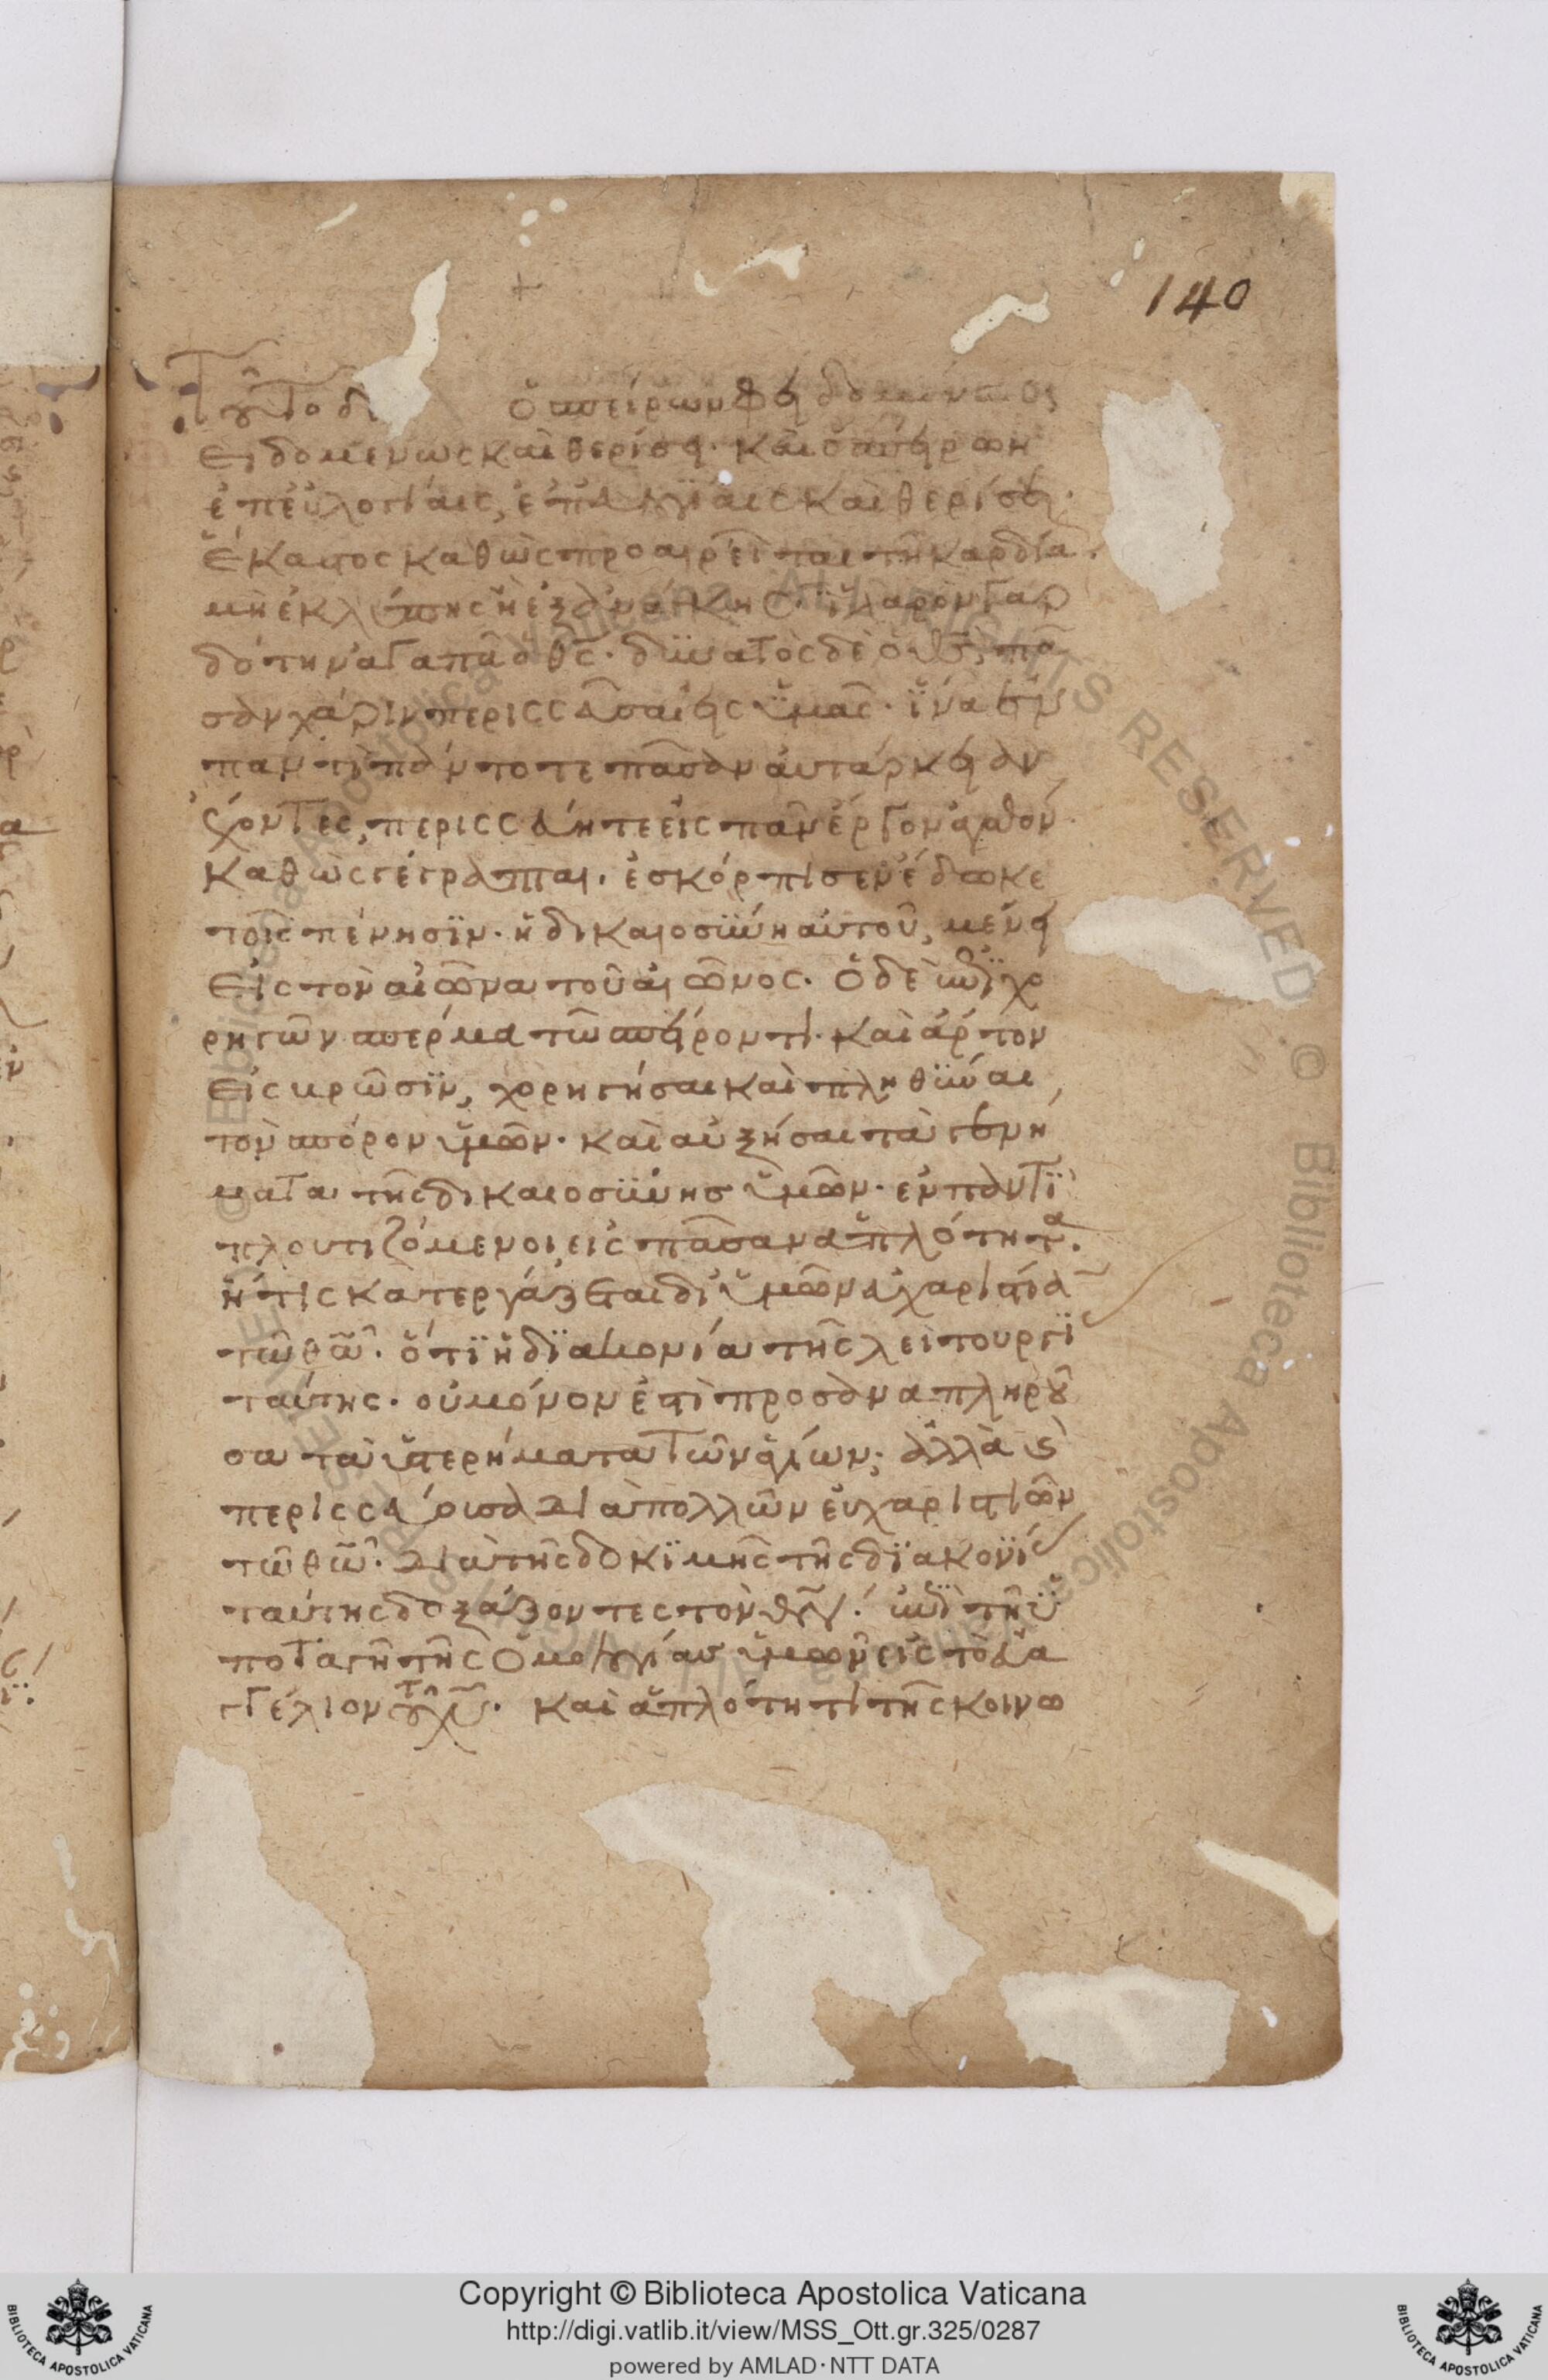 140
τοῦτο δὲ ὁ σπείρων φειδομένως
φειδομένως καὶ θερίσει· καὶ ὁ σπείρων
ἐπ' εὐλογίαις, ἐπ' εὐλογίαις καὶ θερίσει·
ἕκαστος καθὼς προαιρεῖται τῇ καρδία·
μὴ ἐκ λύπης ἢ ἐξ ἀνάγκης· ἱλαρὸν γὰρ
δότην ἀγαπᾶ ὁ θς· δυνατὸς δὲ ὁ θς, πᾶ
σαν χάριν περισσεῦσαι εἰς ὑμᾶς· ἵνα ἐν
παντὶ πάντοτε πᾶσαν αὐτάρκειαν
ἔχοντες, περισσεύητε εἰς πᾶν ἔργον ἀγαθόν·
καθὼς γέγραπται· ἐσκόρπισεν ἔδωκε
τοῖς πένησϊν· ἡ δικαιοσύνη αὐτοῦ, μένει
εἰς τὸν αἰῶνα τοῦ αἰῶνος· ὁ δὲ ἐπιχο
ρηγῶν σπέρμα τῶ σπείροντι· καὶ ἄρτον
εἰς βρῶσϊν, χορηγήσαι καὶ πληθύναι
τὸν σπόρον ὑμῶν· καὶ αὐξήσαι τὰ γενή
ματα τῆς δικαιοσύνης ὑμῶν· ἐν παντὶ
πλουτιζόμενοι εἰς πᾶσαν ἁπλότητα·
ἥτις κατεργάζεται δι' ὑμῶν εὐχαριστίαν
τῶ θῶ· ὅτι ἡ δϊακονία τῆς λειτουργί
ταύτης· οὐ μόνον ἐστὶ προσαναπληροῦ
σα τὰ ὑστερήματα τῶν ἁγίων· ἀλλὰ καὶ
περισσεύουσα διὰ πολλῶν εὐχαριστιῶν
τῶ θῶ· διὰ τῆς δοκϊμῆς τῆς δϊακονί
ταύτης δοξάζοντες τὸν θν· ἐπὶ τῇ ὑ
ποταγῇ τῆς ὁμολογίας ὑμῶν εἰς τὸ εὐα
γγέλιον τοῦ χυ· καὶ ἁπλότητι τῆς κοινω
Copyright © Biblioteca Apostolica Vaticana
http://digi.vatlib.it/view/MSS_Ott.gr.325/0287
powered by AMLAD·NTT DATA